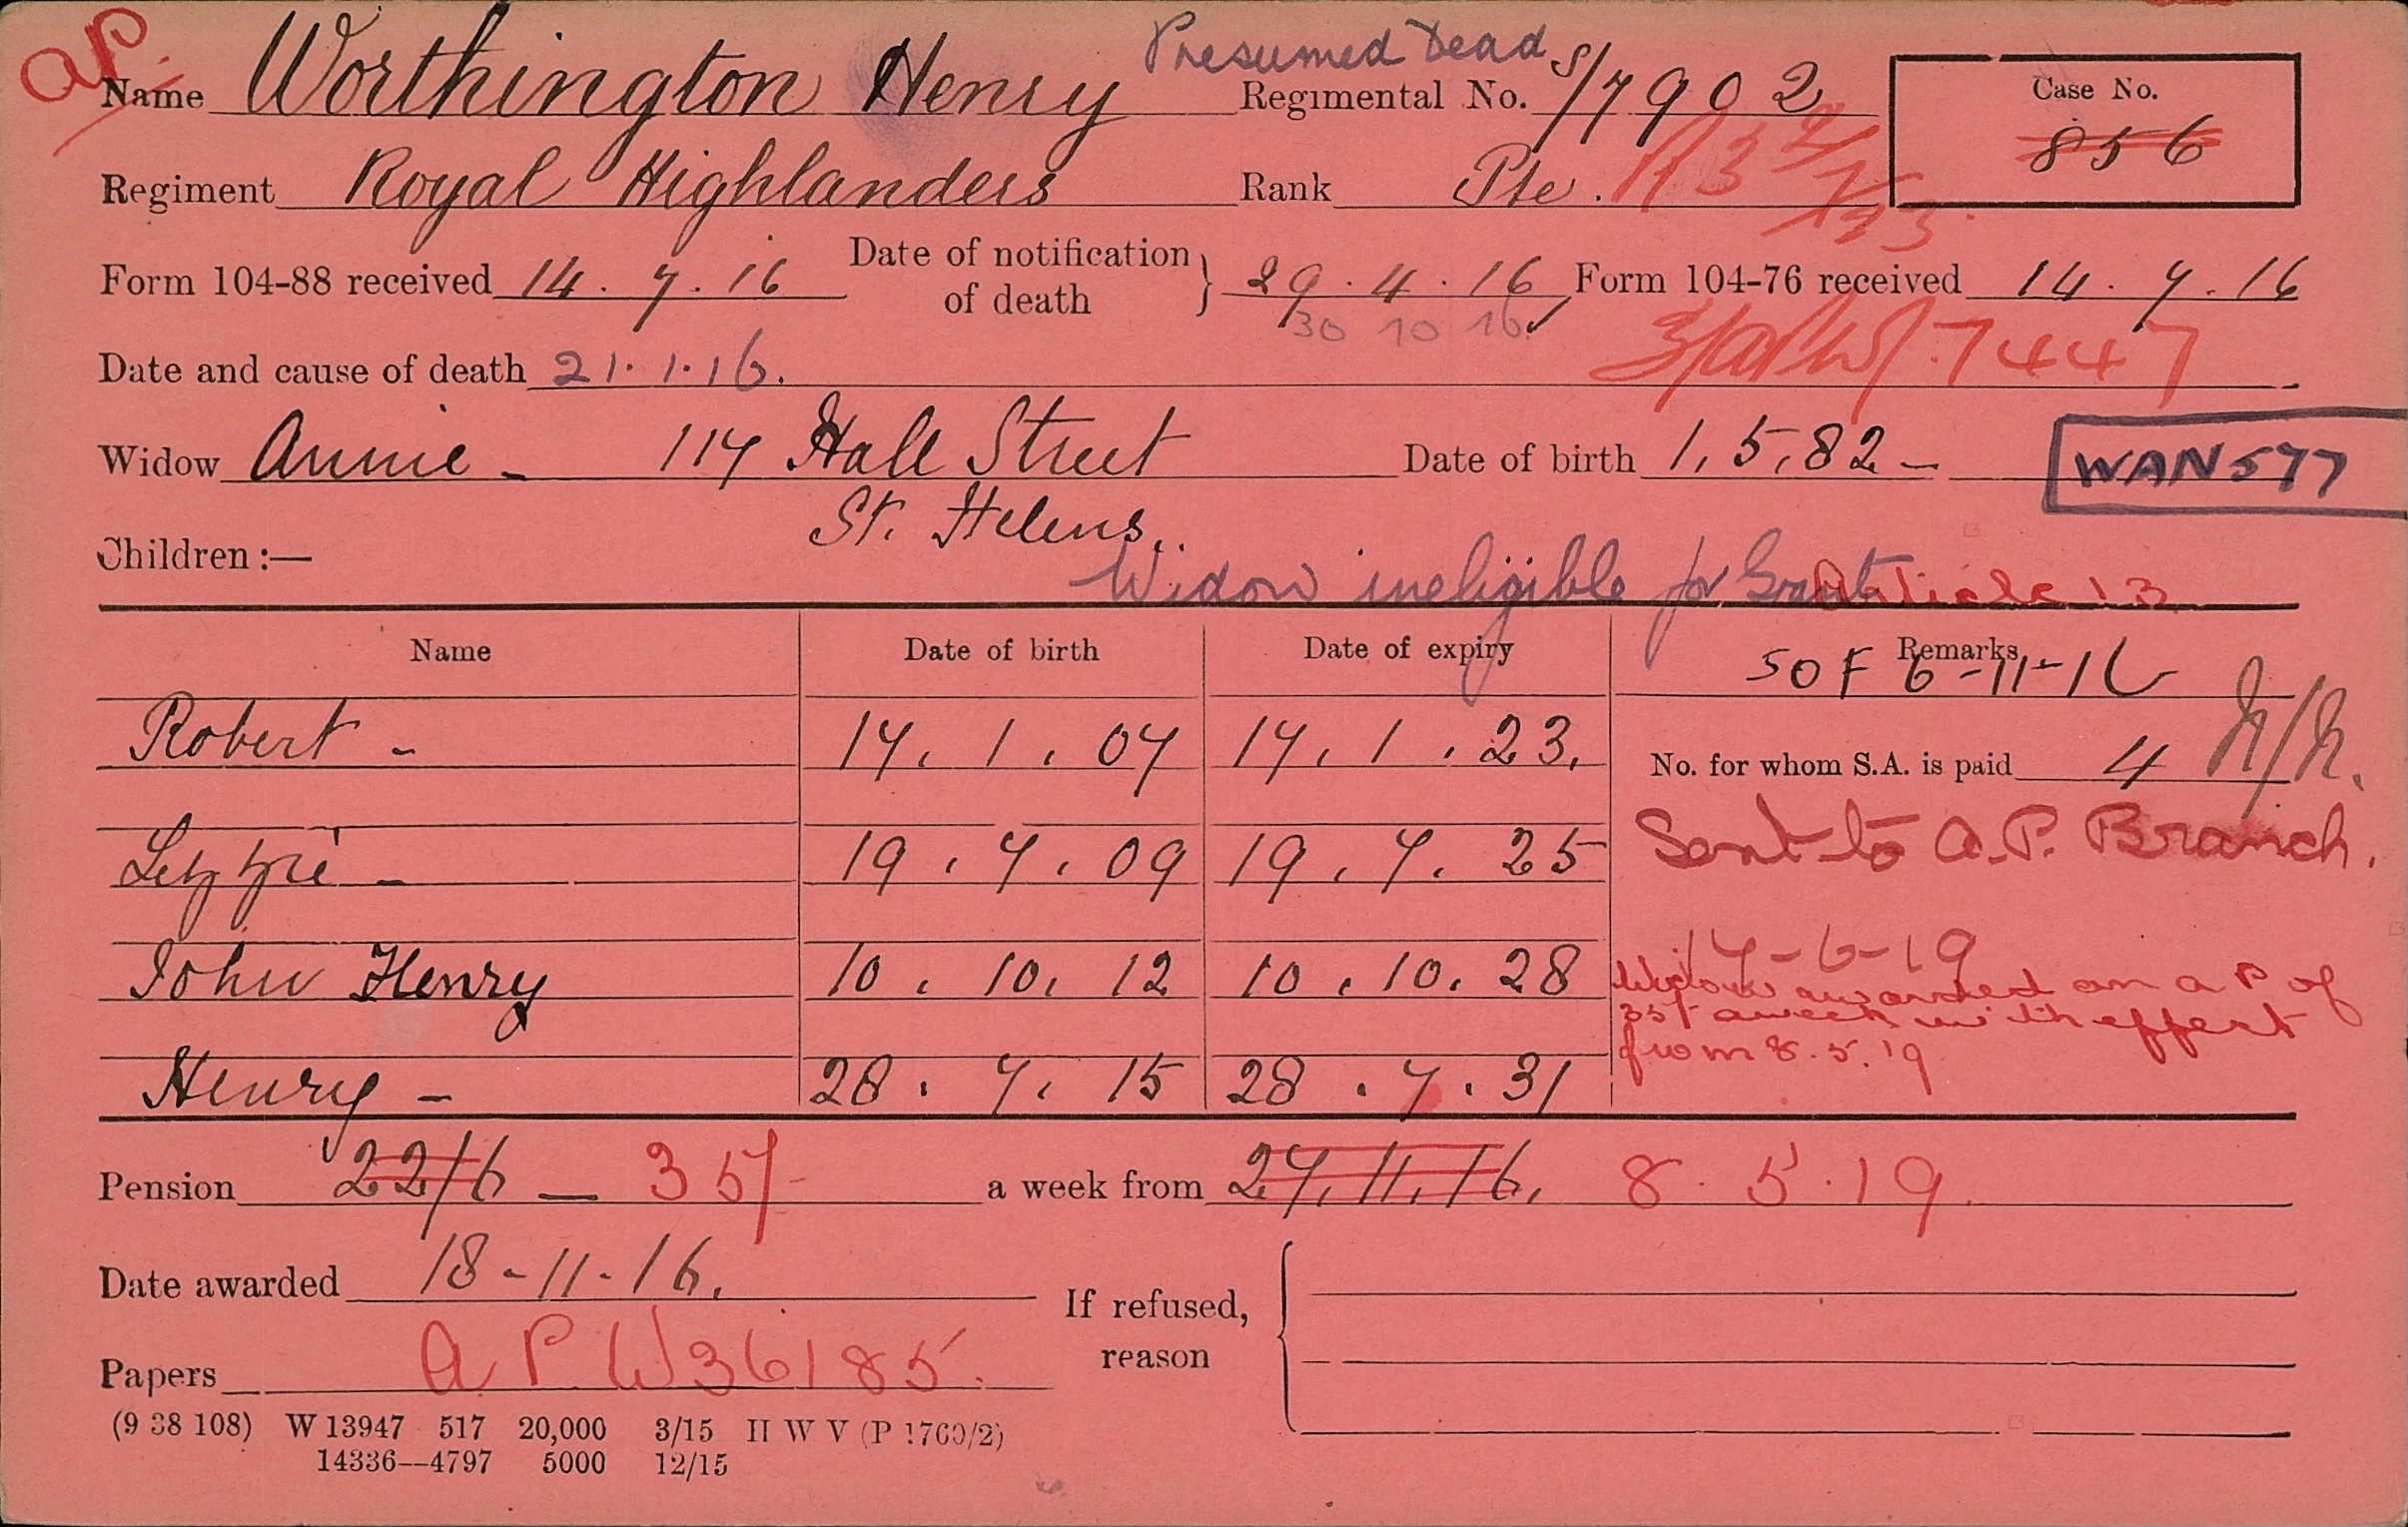 AP
Presumed Dead
Name Worthington Henry Regimental No. S/7902
Case No.
856
Regiment Royal Highlanders Rank Pte.
Form 104-88 received 14.7.16 Date of notification of death 29.4.16 Form 104-76 received 14.7.16
30 10 16
Date and cause of death 21.1.16. 7447
Widow Annie - 117 Hall Street Date of birth 1.5.82 - WAN577
St. Helens.
Children :—
Widow ineligible for Grant Article 13
Name Date of birth Date of expiry Remarks
SOF 6-11-16
Robert - 17.1.07 17.1.23.
No. for whom S.A. is paid 4 N/R.
Lizzie - 19.7.09 19.7.25
Sent to A.P. Branch.
17-6-19
John Henry 10.10.12 10.10.28
Widow awarded an A P of
35/- a week with effect
from 8.5.19
Henry - 28.7.15 28.7.31
Pension 22/6 — 35/- a week from 27.11.16. 8.5.19.
Date awarded 18-11-16.
If refused, reason
Papers A P W36185.
(9 38 108) W 13947 517 20,000 3/15 H W V (P 1760/2)
14336--4797 5000 12/15